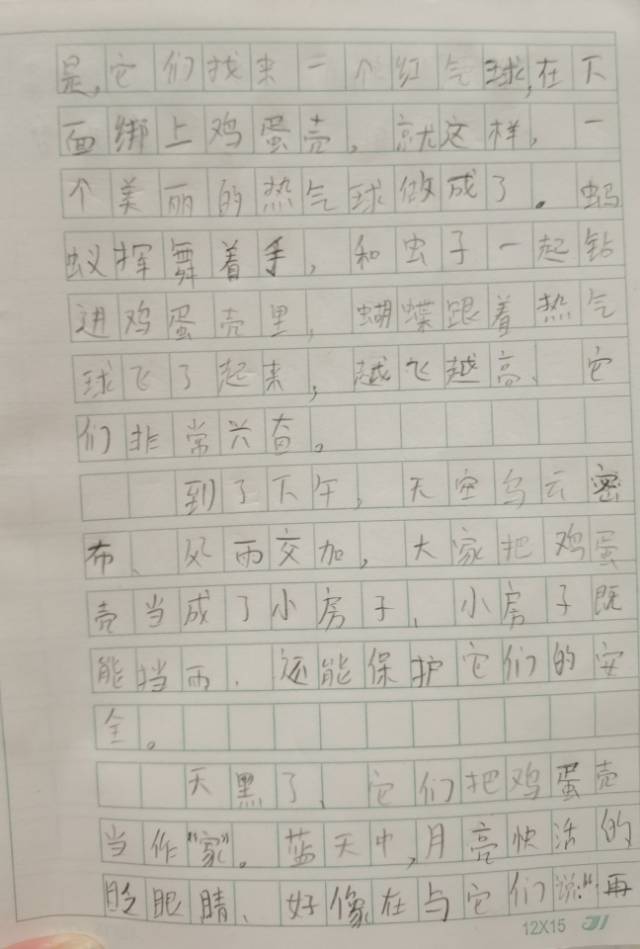 是,它们找来一个红气球,在下
面绑上鸡蛋壳,就这样,一
个美丽的热气球做成了。蚂
蚁挥舞着手,和虫子一起钻
进鸡蛋壳里,蝴蝶跟着热气
球飞了起来,越飞越高、它
们非常兴奋。
到了下午,天空乌云密
布、风雨交加,大家把鸡蛋
壳当成了小房子,小房子既
能挡雨、还能保护它们的安
全。
天黑了、它们把鸡蛋壳
当作"家"。蓝天中,月亮快活的
眨眼睛、好像在与它们说:"再
12X15